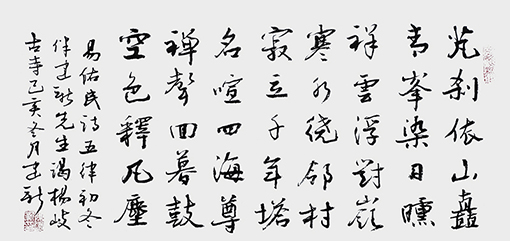 梵刹依山矗
青峯染日曛
祥雲浮對嶺
寒水繞邻村
寂立千年塔
名喧四海尊
禅聲回暮鼓
空色釋凡塵
易佑民詩五律初冬
伴建新先生謁楊岐
古寺己亥冬月建新